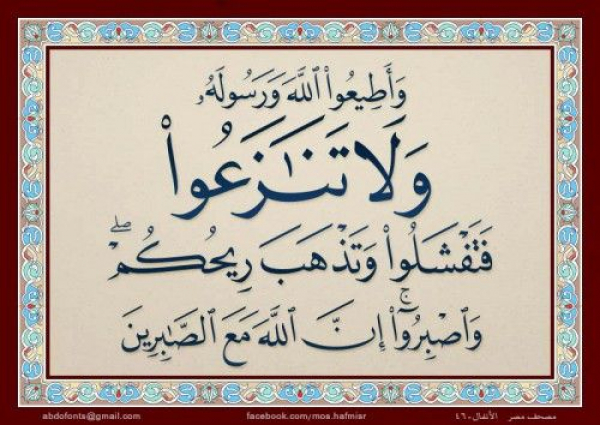 وَأَطِيعُوا۟ ٱللَّهَ وَرَسُولَهُۥ
وَلَا تَنَـٰزَعُوا۟
فَتَفْشَلُوا۟ وَتَذْهَبَ رِيحُكُمْ ۖ
وَٱصْبِرُوٓا۟ ۚ إِنَّ ٱللَّهَ مَعَ ٱلصَّـٰبِرِينَ
مصحف مصر الأنفال٤٦٠ facebook.com/mos.hafmisr abdofonts@gmail.com